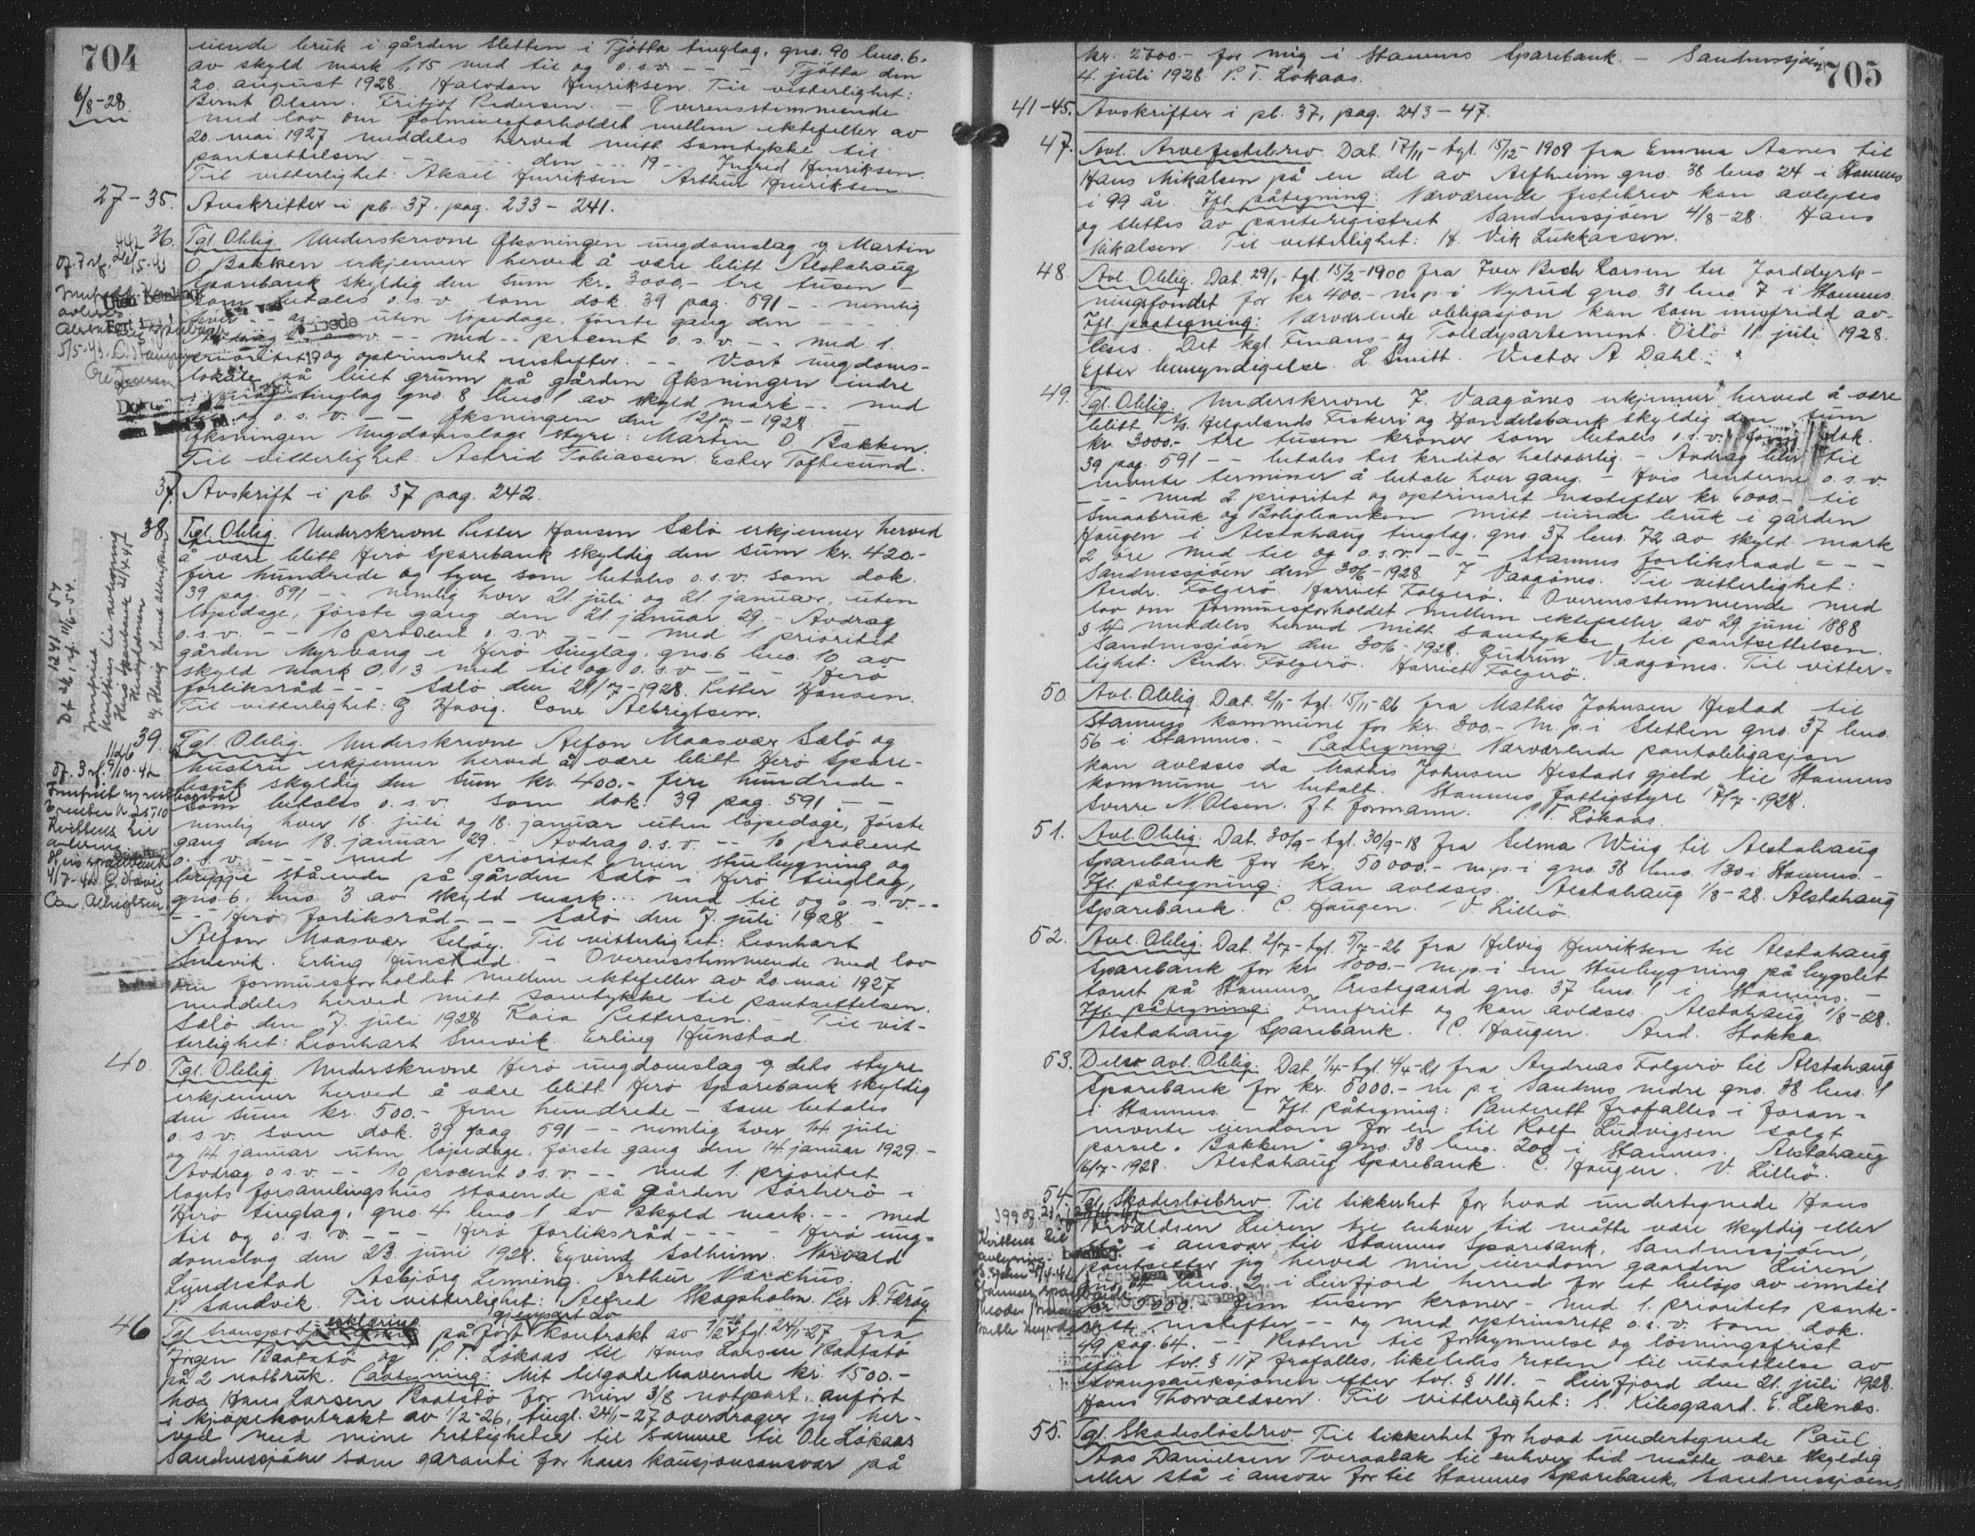 704
6/8-28.
eiende bruk i gården Sletten i Tjøtta tinglag, gno. 90 bno. 6,
av skyld mark 1,15 med til og o.s.v. - - - Tjøtta den
20. august 1928 Halvdan Henriksen. Til vitterlighet:
Bernt Olsen. Fritjof Pedersen. - Overensstemmende
med lov om formuesforholdet mellem ektefeller av
20. mai 1927 meddeles herved mitt samtykke til
pantsettelsen - - - den 19 - Ingrid Henriksen.
Til vitterlighet: Aksel Henriksen Arthur Henriksen
27-35. Avskrifter i pb. 37. pag. 233-241.
36. Tgl. Oblig. Underskrevne Øksningen ungdomslag v/ Martin
O. Bakken erkjenner herved å være blitt Alstahaug
Sparebank skyldig den sum kr. 3000.- tre tusen -
som betales o.s.v. som dok. 39 pag. 591 - - nemlig
hver - - uten løpedage, første gang den
- - med - - procent o.s.v. - - med 1.
prioritet og optrinsret nestefter. - - Vort ungdoms-
lokale på leiet grunn på gården Øksningen indre
i Herø tinglag gno. 8 bno. 1 av skyld mark - - med
til og o.s.v. - - Øksningen den 12/7-1928
Øksningen Ungdomslags styre: Martin O. Bakken.
Til vitterlighet: Astrid Tobiassen Ester Toftesund.
37. Avskrift i pb. 37 pag. 242.
38. Tgl. Oblig. Underskrevne Petter Hansen Sælø erkjenner herved
å være blitt Herø Sparebank skyldig den sum kr. 420.-
fire hundrede og tyve som betales o.s.v. som dok.
39 pag. 591 - - nemlig hver 21. juli og 21. januar, uten
løpedage, første gang den 21. januar 29. - Avdrag
o.s.v. - - 10 procent o.s.v. - - med 1 prioritet
gården Myrvang i Herø tinglag, gno. 6 bno. 10 av
skyld mark 0,13 med til og o.s.v. - - - Herø
forliksråd - - - Sælø den 21/7-1928. Petter Hansen.
Til vitterlighet: G. Havig. Conr. Albrigtsen.
39. Tgl. Oblig. Underskrevne Alfon Maasvær Sælø og
hustru erkjenner herved å være blitt Herø Spare-
bank skyldig den sum kr. 400.- fire hundrede -
som betales o.s.v. som dok. 39 pag. 591 - -
nemlig hver 18. juli og 18. januar uten løpedage, første
gang den 18. januar 29. - Avdrag o.s.v. - - 10 procent
o.s.v. - - - med 1. prioritet min stuebygning og
brygge stående på gården Sælø i Herø tinglag,
gno. 6, bno. 3 av skyld mark... med til og o.s.v. - -
- - Herø forliksråd - - - Sælø den 7. juli 1928 -
Alfon Maasvær Seløy. Til vitterlighet: Leonhart
Snevik. Erling Hunstad. - Overensstemmende med lov
om formuesforholdet mellem ektefeller av 20. mai 1927
meddeles herved mitt samtykke til pantsettelsen.
Sælø den 7. juli 1928 Kaia Pettersen. - Til vit-
terlighet: Leonhart Snevik. Erling Hunstad.
40. Tgl. Oblig. Underskrevne Herø ungdomslag v/ dets styre
erkjenner herved å være blitt Herø Sparebank skyldig
den sum kr. 500.- fem hundrede - som betales
o.s.v. som dok. 39 pag 591 - - nemlig hver 14 juli
og 14 januar uten løpedage, første gang den 14 januar 1929. -
Avdrag o.s.v. - - 10 procent o.s.v. - - med 1. prioritet
lagets forsamlingshus staaende på gården Sørherø i
Herø tinglag, gno. 4 bno 1 av skyld mark. - - med
til og o.s.v. - - - Herø forliksråd - - - Herø ung-
domslag den 23. juni 1928. Eyvind Solheim. Norvald
Lyndstad Asbjørg Lenning. Arthur Nordhus.
P Sandvik. Til vitterlighet: Alfred Skogsholm. Per A. Færøy
46 Tgl. transporterklæring på gjenpart av kontrakt av 1/2-26 tgl. 24/1-27 fra
Jørgen Baatstø og P. T. Løkaas til Hans Larsen Baatstø
på 2 notbruk. Paategning: Mit tilgodehavende kr. 1500.-
hos Hans Larsen Baatstø for min 3/8 notpart, anført
i kjøpekontrakt av 1/2-26, tingl. 24/1-27 overdrager jeg her-
ved med mine rettigheter til samme til Ole Løkaas
Sandnessjøen som garanti for hans kausjonsansvar på
705
kr. 2700.- for mig i Stamnes Sparebank. - Sandnessjøen
4. juli 1928 P. T. Løkaas.
41-45. Avskrifter i pb. 37, pag. 243-47.
47. Avl. Arvefestebrev. Dat. 17/11- tgl. 15/12-1909 fra Emma Aanes til
Hans Mikalsen på en del av Alfheim gno. 38 bno. 24 i Stamnes
i 99 år. Ifl. påtegning: Nærværende festebrev kan avlyses
og slettes av panteregistret. Sandnessjøen 4/8-28. Hans
Mikalsen. Til vitterlighet: H. Vik Lukkassen.
48. Avl. Oblig. Dat. 29/1- tgl. 15/2-1900 fra Iver Bech Larsen til Jorddyrk-
ningsfondet for kr. 400.- m.p. i Nyrud gno. 31 bno. 7 i Stamnes.
Ifl. paategning: Nærværende obligasjon kan som innfridd av-
leses. Det kgl. Finans- og Tolldepartement. Oslo 11. juli 1928.
Efter bemyndigelse. L Smitt. Victor A. Dahl.
49. Tgl. Oblig. Underskrevne J. Vaagönes erkjenner herved å være
blitt A/s Helgelands Fiskeri og Handelsbank skyldig den sum
kr. 3000.- tre tusen kroner som betales o.s.v. som dok.
39 pag. 591 - - betales til kreditor halvaarlig. - Avdrag blir til
- - - terminer å betale hver gang. - Hvis renterne o.s.v.
- - - med 2. prioritet og optrinsret nestefter kr. 6000.- til
Smaabruk og Boligbanken mitt eiende bruk i gården
Haugen i Alstahaug tinglag. gno. 37 bno. 72 av skyld mark
2 øre med til og o.s.v. - - - Stamnes forliksraad - - -
Sandnessjøen den 30/6-1928. J. Vaagönes. Til vitterlighet:
Andr. Folgerö. Harriet Folgerö. - Overensstemmende med
lov om formuesforholdet mellem ektefeller av 29. juni 1888
§ 14 meddeles herved mitt samtykke til pantsettelsen.
Sandnessjøen den 30/6-1928. Gudrun Vaagönes. Til vitter-
lighet: Andr. Folgerö. Harriet Folgerö.
50. Avl. Oblig. Dat. 2/11- tgl. 15/11-26 fra Mathis Johnsen Hestad til
Stamnes kommune for kr. 300.- m.p. i Sletten gno. 37 bno.
56 i Stamnes. - Paategning: Nærværende pantobligasjon
kan avleses da Mathis Johnsen Hestads gjeld til Stamnes
kommune er betalt. Stamnes fattigstyre 17/7-1928.
Sverre N. Olsen, f.t. formann. P. T. Løkaas.
51. Avl. Oblig. Dat. 30/9- tgl. 30/9-18 fra Selma Wiig til Alstahaug
Sparebank for kr. 50000.- m.p. i gno. 38 bno. 130 i Stamnes. -
Ifl. påtegning: Kan avleses. Alstahaug 1/8-28. Alstahaug
Sparebank. C. Haugen. V. Lillëö.
52. Avl. Oblig. Dat. 2/7- tgl. 5/7-26 fra Helvig Henriksen til Alstahaug
Sparebank for kr. 1000.- m.p. i en stuebygning på bygslet
tomt på Stamnes Prestegaard gno. 37 bno. 1 i Stamnes. -
Ifl. påtegning: Innfriet og kan avleses. Alstahaug 1/8-28.
Alstahaug Sparebank. C. Haugen. And. Stokka.
53. Delse avl. Oblig. Dat. 1/4- tgl. 4/4-21 fra Andreas Folgerö til Alstahaug
Sparebank for kr. 5000.- m.p. i Sandnes nedre gno. 38 bno. 1
i Stamnes. - Ifl. påtegning: Panterett frafalles i foran-
nevnte eiendom for en til Rolf Ludvigsen solgt
parsel. "Bakken" gno. 38 bno. 200 i Stamnes. Alstahaug
16/7-1928. Alstahaug Sparebank. C. Haugen. V. Lilleö.
54. Tgl. Skadesløsbrev. Til sikkerhet for hvad undertegnede Hans
Torvaldsen Leiren til enhver tid måtte være skyldig eller
stå i ansvar til Stamnes Sparebank, Sandnessjøen,
pantsetter jeg herved min eiendom gaarden Leiren
gno. 64 bno. 2 i Leirfjord herred for et beløp av inntil
kr. 5000.- fem tusen kroner - med 1. prioritets pante-
rett nestefter - - og med optrinsrett o.s.v. som dok.
49 pag. 64. - - Retten til forkynnelse og løsningsfrist
efter tvl. § 117 frafalles, likeledes retten til utsettelse av
tvangsauksjonen efter tvl. § 111. - Leirfjord den 21. juli 1928.
Hans Thorvaldsen. Til vitterlighet: S. Kilesgaard. E. Leknes.
55. Tgl. Skadesløsbrev. Til sikkerhet for hvad undertegnede Paul
Aas Danielsen Tveraabak til enhver tid måtte være skyldig
eller stå i ansvar for til Stamnes Sparebank, Sandnessjøen,